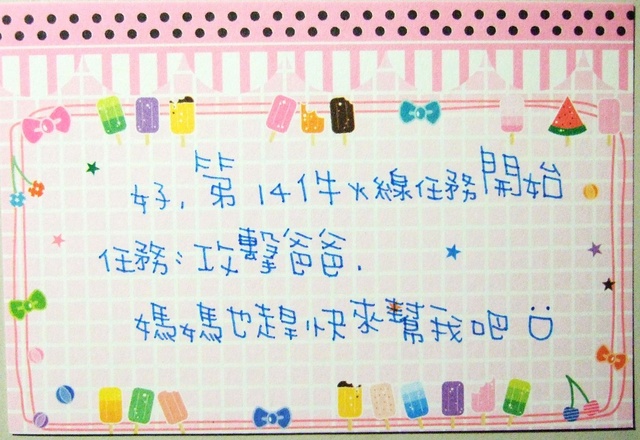 好,第14件火線任務開始
任務:攻擊爸爸.
媽媽也趕快來幫我吧 :D